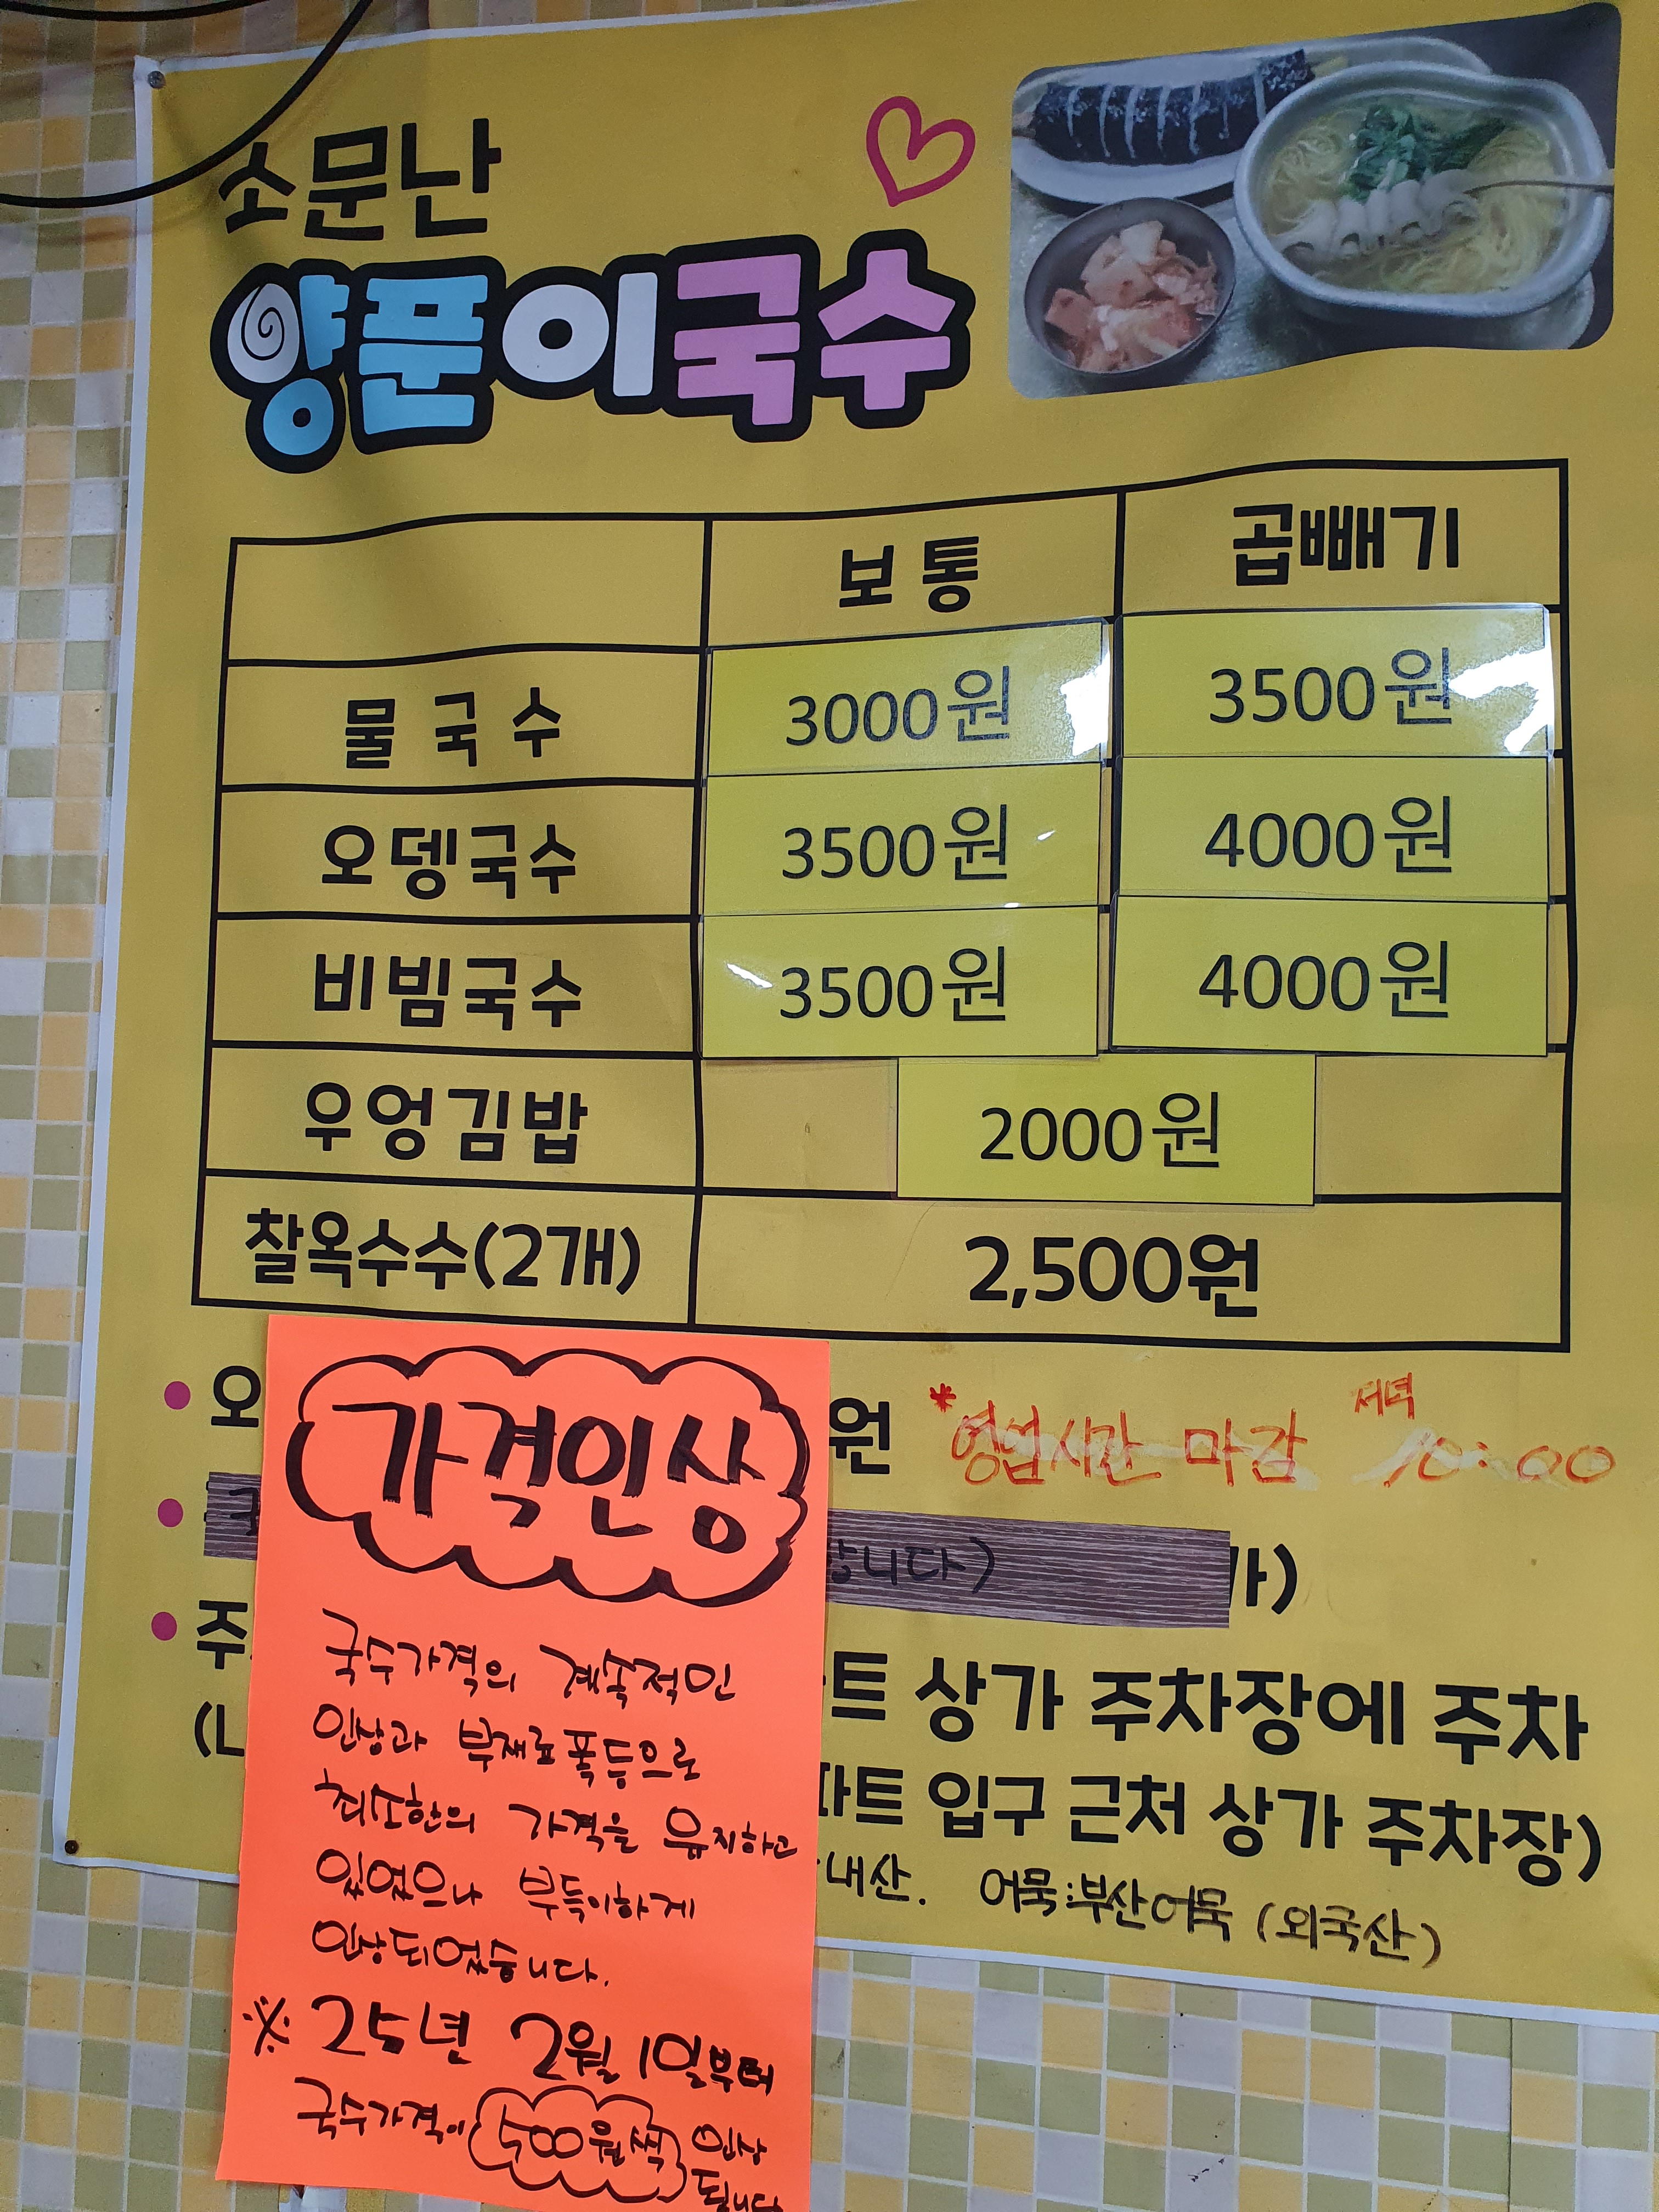 소문난
양푼이국수
보통 곱빼기
물국수 3000원 3500원
오뎅국수 3500원 4000원
비빔국수 3500원 4000원
우엉김밥 2000원
찰옥수수(2개) 2,500원
오 원 *영업시간 마감 저녁 10:00
합니다) 가)
주 트 상가 주차장에 주차
파트 입구 근처 상가 주차장)
내산. 어묵:부산어묵 (외국산)
가격인상
국수가격의 계속적인
인상과 부재료폭등으로
최소한의 가격을 유지하고
있었으나 부득이하게
인상되었습니다.
※ 25년 2월 1일부터
국수가격이 500원씩 인상
됩니다